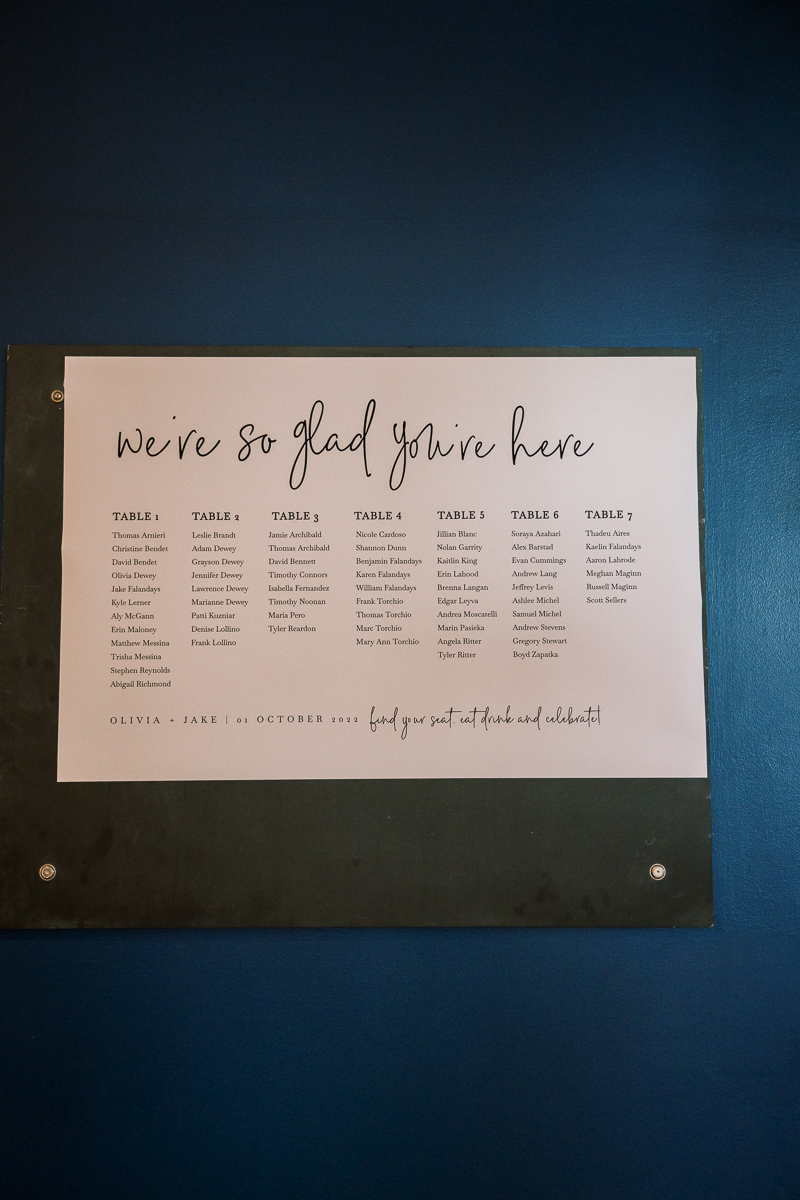 we're so glad you're here
TABLE 1
Thomas Arnieri
Christine Bendet
David Bendet
Olivia Dewey
Jake Falandays
Kyle Lerner
Aly McGann
Erin Maloney
Matthew Messina
Trisha Messina
Stephen Reynolds
Abigail Richmond
TABLE 2
Leslie Brandt
Adam Dewey
Grayson Dewey
Jennifer Dewey
Lawrence Dewey
Marianne Dewey
Patti Kuzniar
Denise Lollino
Frank Lollino
TABLE 3
Jamie Archibald
Thomas Archibald
David Bennett
Timothy Connors
Isabella Fernandez
Timothy Noonan
Maria Pero
Tyler Reardon
TABLE 4
Nicole Cardoso
Shannon Dunn
Benjamin Falandays
Karen Falandays
William Falandays
Frank Torchio
Thomas Torchio
Marc Torchio
Mary Ann Torchio
TABLE 5
Jillian Blanc
Nolan Garrity
Kaitlin King
Erin Lahood
Brenna Langan
Edgar Leyva
Andrea Moscatelli
Marin Pasieka
Angela Ritter
Tyler Ritter
TABLE 6
Soraya Azahari
Alex Barstad
Evan Cummings
Andrew Lang
Jeffrey Levis
Ashlee Michel
Samuel Michel
Andrew Stevens
Gregory Stewart
Boyd Zapatka
TABLE 7
Thadeu Aires
Kaelin Falandays
Aaron Labrode
Meghan Maginn
Russell Maginn
Scott Sellers
OLIVIA + JAKE | 01 OCTOBER 2022 find your seat. eat drink and celebrate!